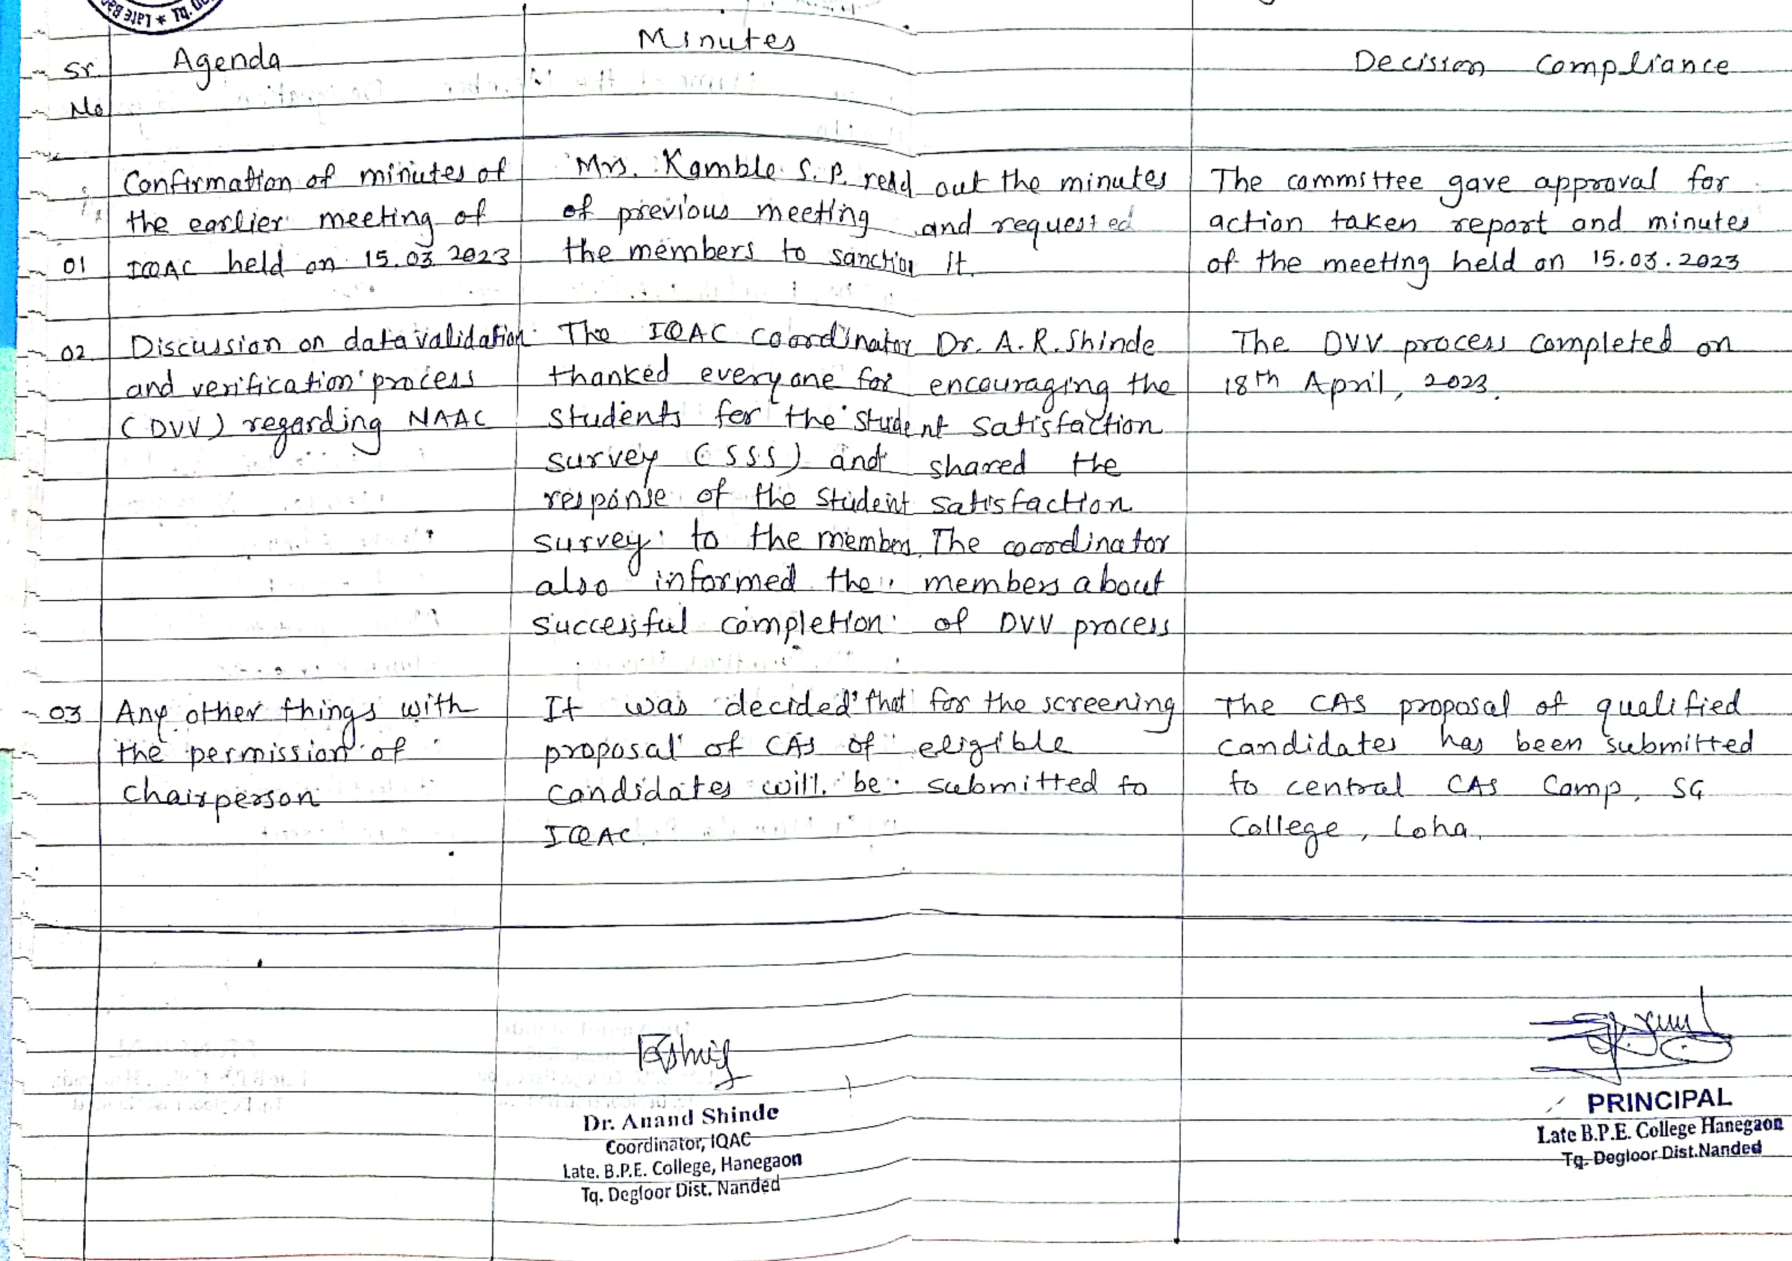 Sr.
No
Agenda
Minutes
Decision Compliance
01
Confirmation of minutes of
the earlier meeting of
IQAC held on 15.03.2023
Mrs. Kamble S.P. read out the minutes
of previous meeting and requested
the members to sanction it.
The committee gave approval for
action taken report and minutes
of the meeting held on 15.03.2023
02
Discussion on data validation
and verification process
(DVV) regarding NAAC
The IQAC Coordinator Dr. A.R. Shinde
thanked everyone for encouraging the
students for the student satisfaction
survey (SSS) and shared the
response of the student satisfaction
survey to the members. The coordinator
also informed the members about
successful completion of DVV process
The DVV process completed on
18th April, 2023.
03
Any other things with
the permission of
Chairperson
It was decided that for the screening
proposal of CAS of eligible
candidates will be submitted to
IQAC.
The CAS proposal of qualified
candidates has been submitted
to central CAS Camp, SG
College, Loha.
Dr. Anand Shinde
Coordinator, IQAC
Late. B.P.E. College, Hanegaon
Tq. Degloor Dist. Nanded
PRINCIPAL
Late B.P.E. College Hanegaon
Tq. Degloor Dist.Nanded